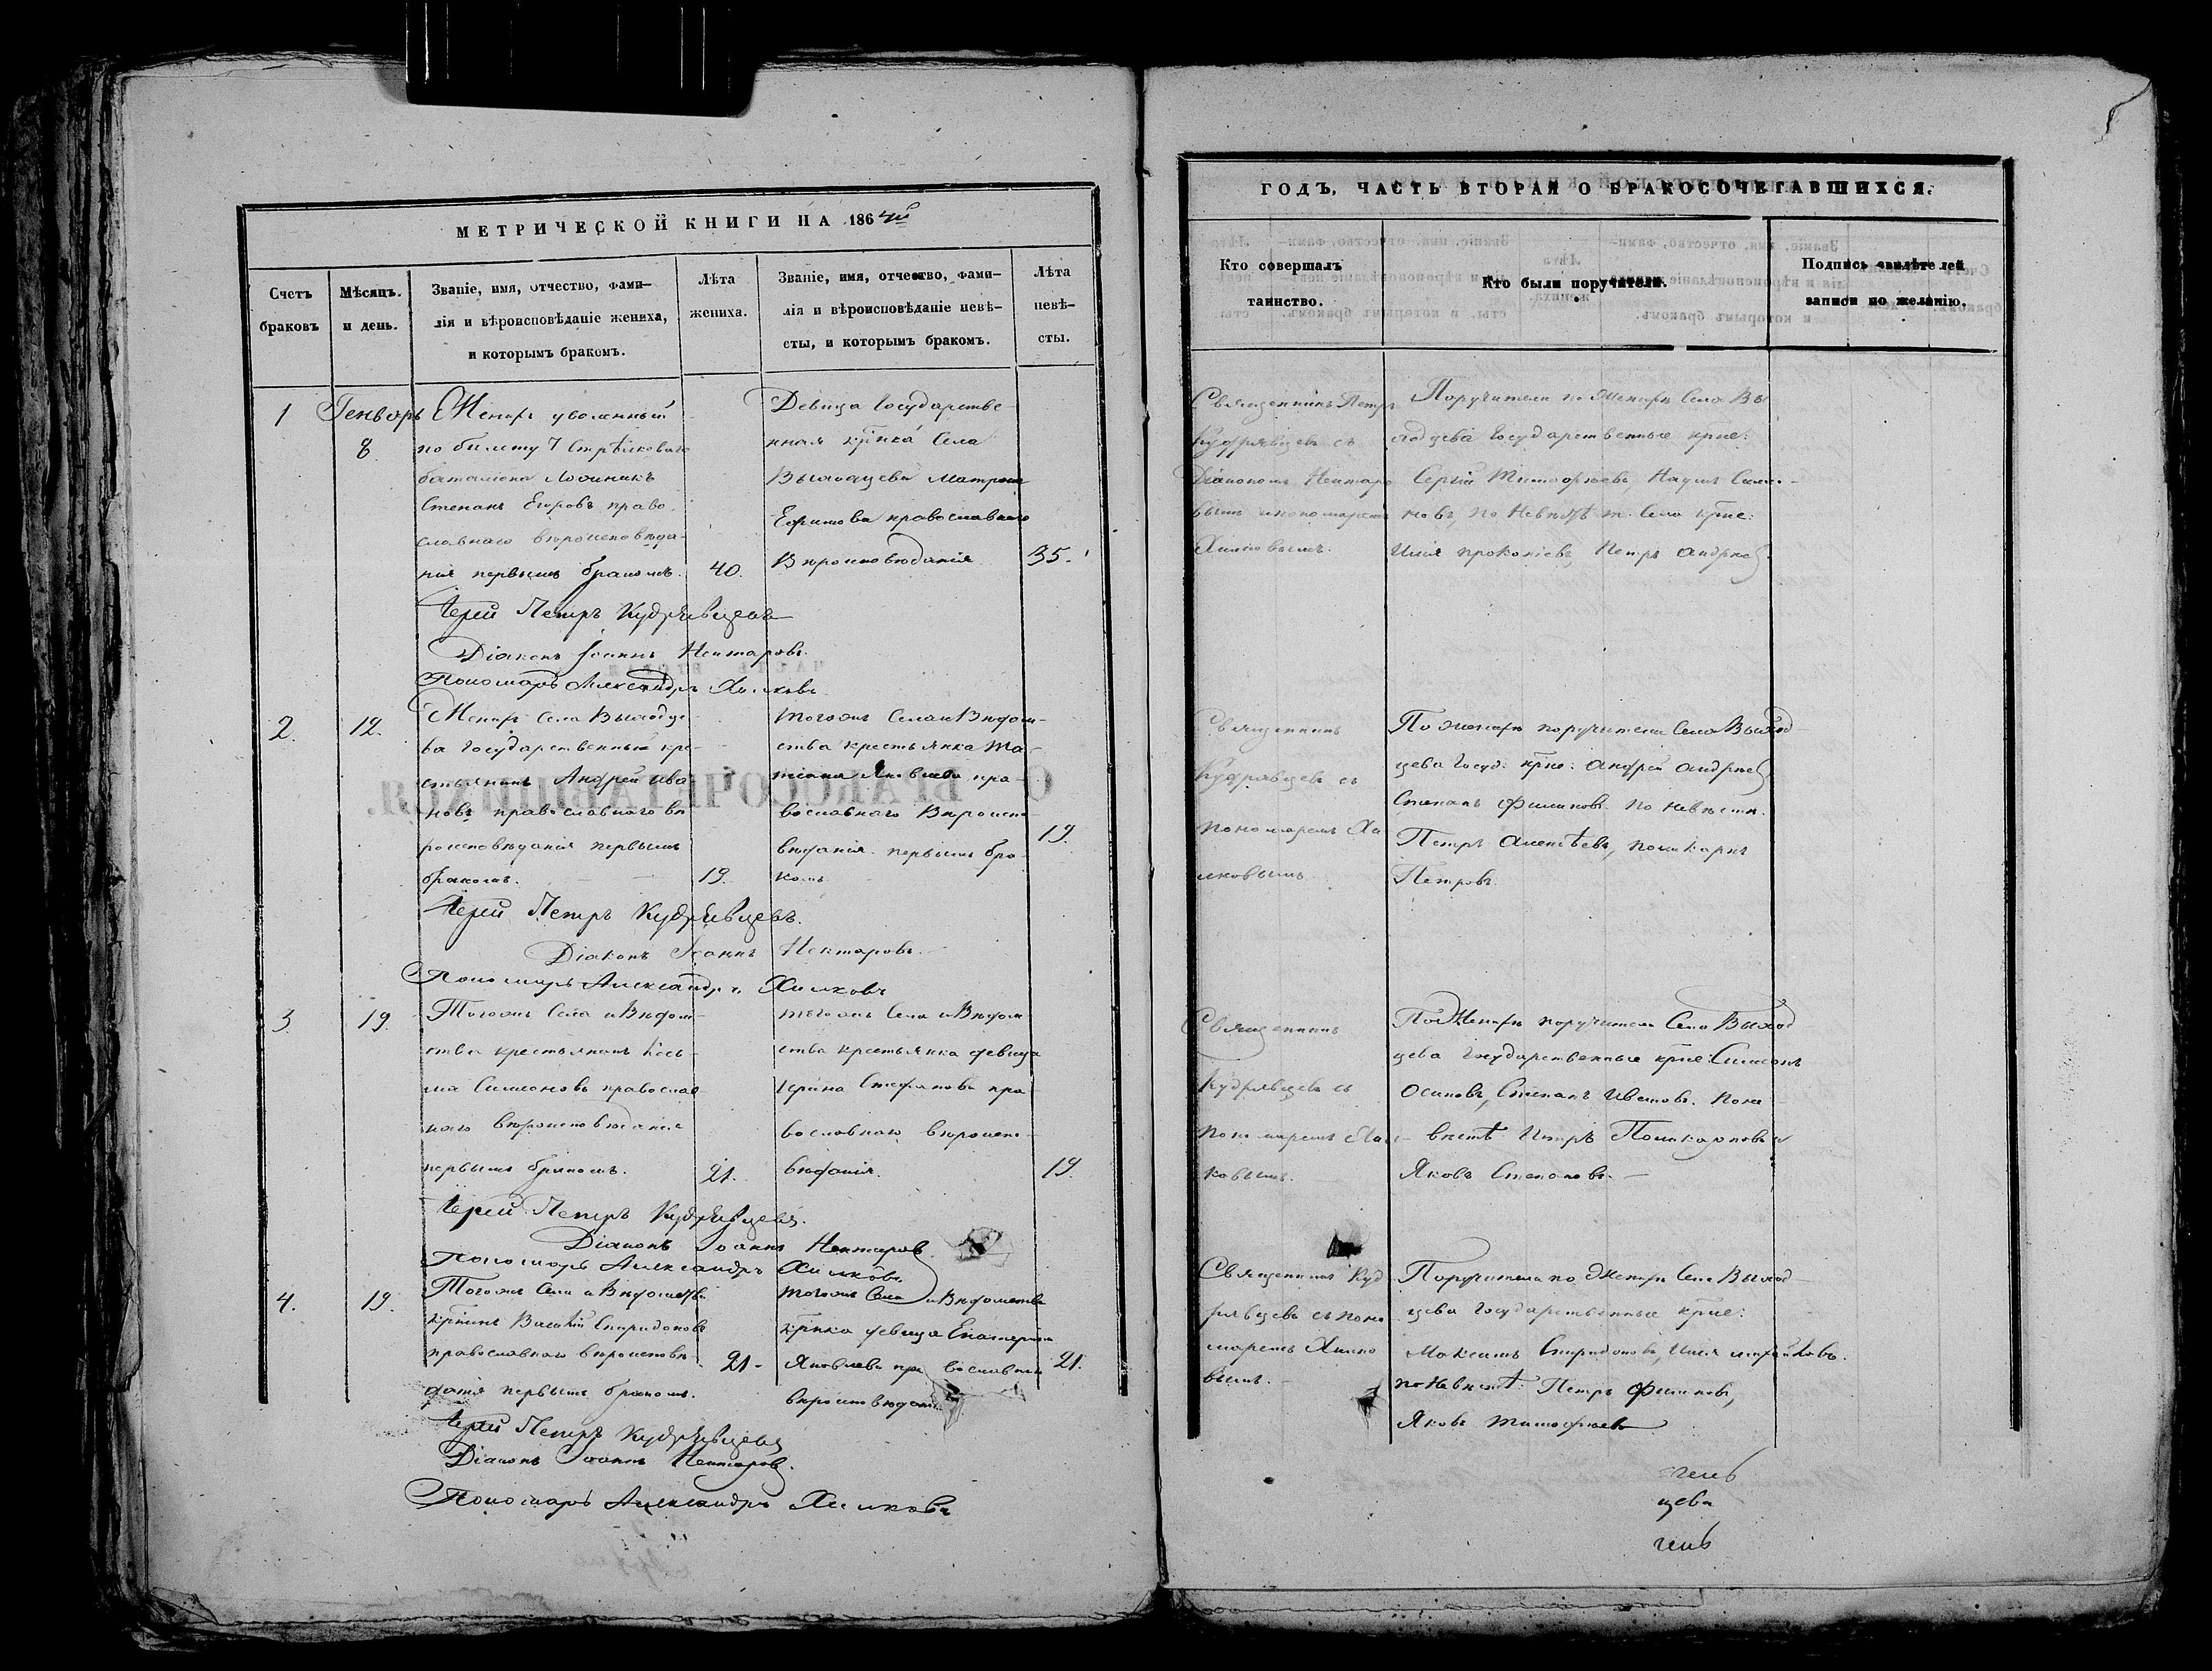 МЕТРИЧЕСКОЙ КНИГИ НА 1864й
Счетъ браковъ
Мѣсяцъ и день.
Званіе, имя, отчество, фами-
лія и вѣроисповѣданіе жениха,
и которымъ бракомъ.
Лѣта жениха.
Званіе, имя, отчество, фами-
лія и вѣроисповѣданіе невѣ-
сты, и которымъ бракомъ.
Лѣта невѣ-
сты.
1
Генварь
8
Женихъ уволенный
по билету 7 Стрѣлковаго
баталіона
Степанъ Егоровъ право
славнаго вѣроисповѣда-
нія первымъ бракомъ.
40.
Девица Государстве-
нная крнка Села
Выходцева Матрона
Ефимова православнаго
Вѣроисповѣданія
35.
Іерей Петръ Кудрявцевъ
Діаконъ Іоаннъ Нектаровъ.
Пономарь Александръ Хилковъ
2.
12.
Женихъ Села Выходце
ва Государственный кре-
стьянинъ Андрей Ива
новъ православнаго вѣ
роисповѣданія первымъ
бракомъ.
19.
тогожъ Села и Вѣдом-
ства крестьянка Та-
тіана Яковлева пра-
вославнаго Вѣроиспо
вѣданія первымъ бра-
комъ
19.
Іерей Петръ Кудрявцевъ.
Діаконъ Іоаннъ Нектаровъ.
Пономарь Александръ Хилковъ
3
19.
Тогожъ Села и Вѣдом-
ства крестьянинъ Кось-
ма Симеоновъ православ-
наго вѣроисповѣданія
первымъ бракомъ.
21.
тогожъ Села и Вѣдом
ства крестьянка девица
Ирина Стефанова пра-
вославнаго вѣроиспо-
вѣданія.
19.
Іерей Петръ Кудрявцевъ.
Діаконъ Іоаннъ Нектаровъ
Пономарь Александръ Хилковъ
4.
19.
Тогожъ Села и Вѣдомства
крнинъ Василій Спиридоновъ
православнаго вѣроисповѣ-
данія первымъ бракомъ.
21-
тогожъ Села и Вѣдомства
крнка девица Екатерина
Яковлева православнаго
вѣроисповѣданія
21.
Іерей Петръ Кудрявцевъ
Діаконъ Іоаннъ Нектаровъ.
Пономарь Александръ Хилковъ
ГОДЪ, ЧАСТЬ ВТОРАЯ О БРАКОСОЧЕТАВШИХСЯ.
Кто совершалъ
таинство.
Кто были поручители.
Подпись свидѣтелей
записи по желанію.
Священникъ Петръ
Кудрявцевъ съ
Діакономъ Нектаро
вымъ и пономаремъ
Хилковымъ.
Поручители по женихѣ Села Вы
ходцева Государственные крне:
Сергій Тимофеевъ, Наумъ Симео-
новъ, по Невѣстѣ т. Села крне:
Илія Прокопіевъ, Петръ Андреевъ.
Священникъ
Кудрявцевъ съ
пономаремъ Хи
лковымъ
По женихѣ поручители Села Выход-
цева Госуд: крне: Андрей Андреевъ
Степанъ Филиповъ. По невѣстѣ.
Петръ Алексѣевъ, Поликарпъ
Петровъ.
Священникъ
Кудрявцевъ съ
пономаремъ Хил-
ковымъ.
По Женихѣ поручители Села Выход
цева Государственные крне: Симеонъ
Осиповъ, Степанъ Ивановъ. По не-
вѣстѣ Петръ Поликарповъ и
Яковъ Степановъ.
Священникъ Куд
рявцевъ съ поно
маремъ Хилко
вымъ.
Поручители по Женихѣ Села Выход-
цева Государственные крне:
Максимъ Спиридоновъ, Илія Михайловъ.
по Невѣстѣ: Петръ Филиповъ,
Яковъ Тимофеевъ
цева